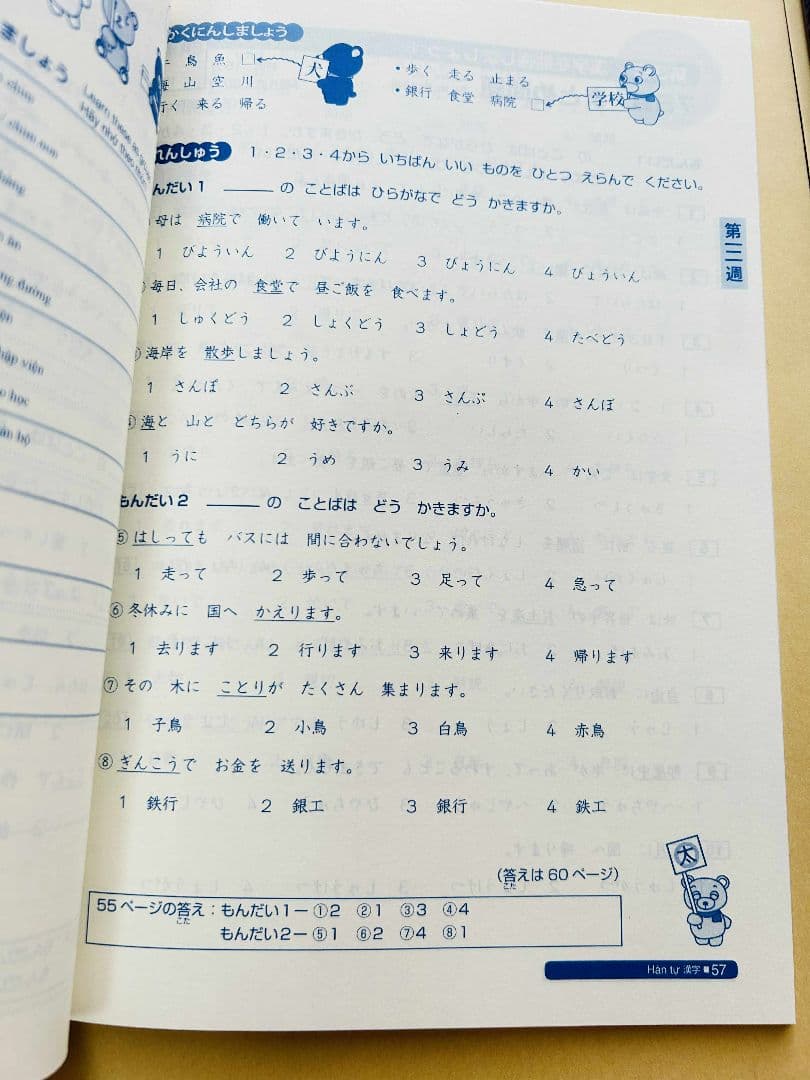 かくにんしましょう
鳥 魚
犬
山 空 川
行く 来る 帰る
・歩く 走る 止まる
・銀行 食堂 病院
学校
れんしゅう 1・2・3・4から いちばん いい ものを ひとつ えらんで ください。
んだい1 ＿＿＿の ことばは ひらがなで どう かきますか。
母は 病院で 働いて います。
1 びよういん 2 びようにん 3 びょうにん 4 びょういん
毎日、会社の 食堂で 昼ご飯を 食べます。
1 しゅくどう 2 しょくどう 3 しょどう 4 たべどう
海岸を 散歩しましょう。
1 さんぽ 2 さんぶ 3 さんぷ 4 さんぼ
④海と 山と どちらが 好きですか。
1 うに 2 うめ 3 うみ 4 かい
もんだい2 ＿＿＿の ことばは どう かきますか。
⑤はしっても バスには 間に合わないでしょう。
1 走って 2 歩って 3 足って 4 急って
⑥冬休みに 国へ かえります。
1 去ります 2 行ります 3 来ります 4 帰ります
⑦その 木に ことりが たくさん 集まります。
1 子鳥 2 小鳥 3 白鳥 4 赤鳥
⑧ぎんこうで お金を 送ります。
1 鉄行 2 銀工 3 銀行 4 鉄工
第三週
太
（答えは60ページ）
こた
55ページの答え：もんだい1－①2 ②1 ③3 ④4
こた
もんだい2－⑤1 ⑥2 ⑦4 ⑧1
Hán tự 漢字■57
ましょう
Learn these
Hãy nhớ
ng đường
hập viện
o học